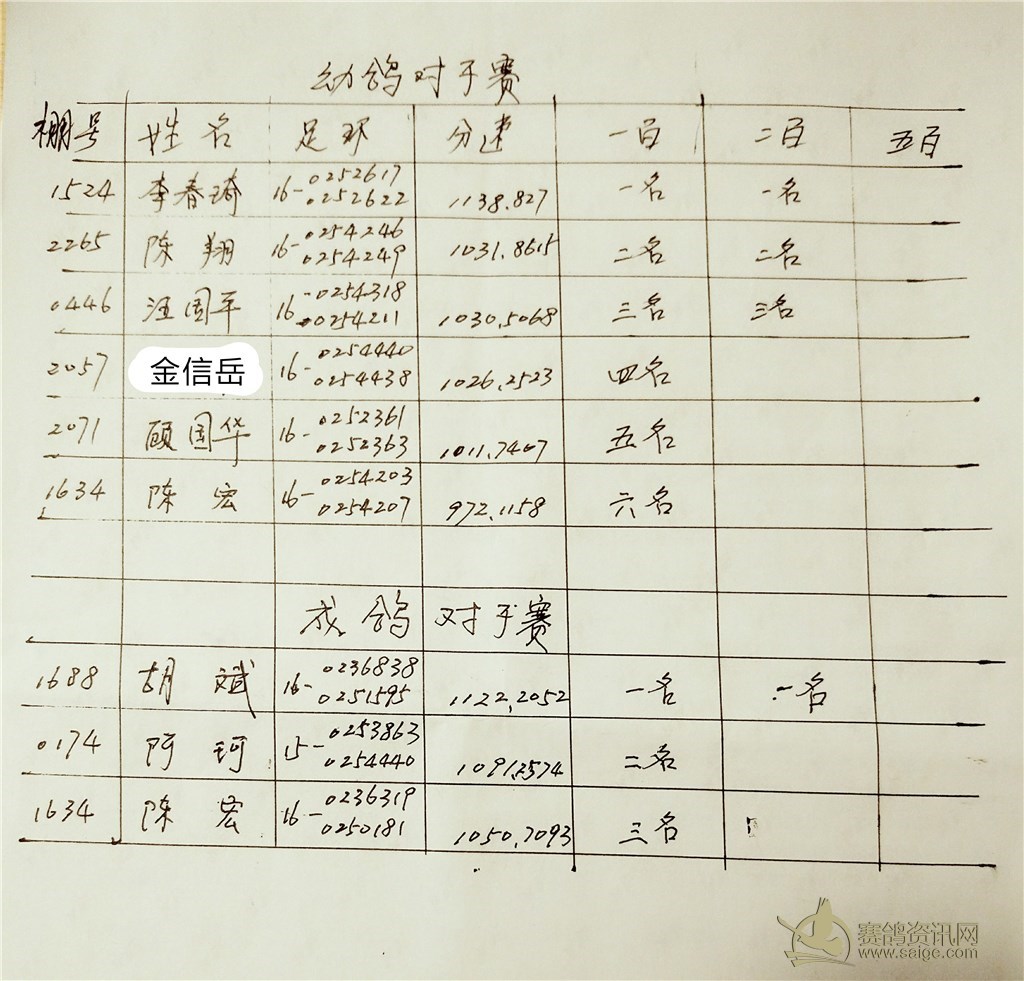 幼鸽对于赛
棚号 姓名 足环 分速 一百 二百 五百
1524 李春琦 16-0252617 0252622 1138.827 一名 一名
2265 陈翔 16-0254246 0254249 1031.8615 二名 二名
0446 汪国平 16-0254318 0254211 1030.5068 三名 三名
2057 金信岳 16-0254440 0254438 1026.2523 四名
2071 顾国华 16-0252361 0252363 1011.7467 五名
1634 陈宏 16-0254203 0254207 972.1158 六名
成鸽对于赛
1688 胡斌 16-0236838 0251595 1122.2052 一名 一名
0174 阿珂 15-0253863 0254440 1091.2574 二名
1634 陈宏 16-0236319 0250181 1050.7093 三名
赛鸽资讯网
www.saige.com